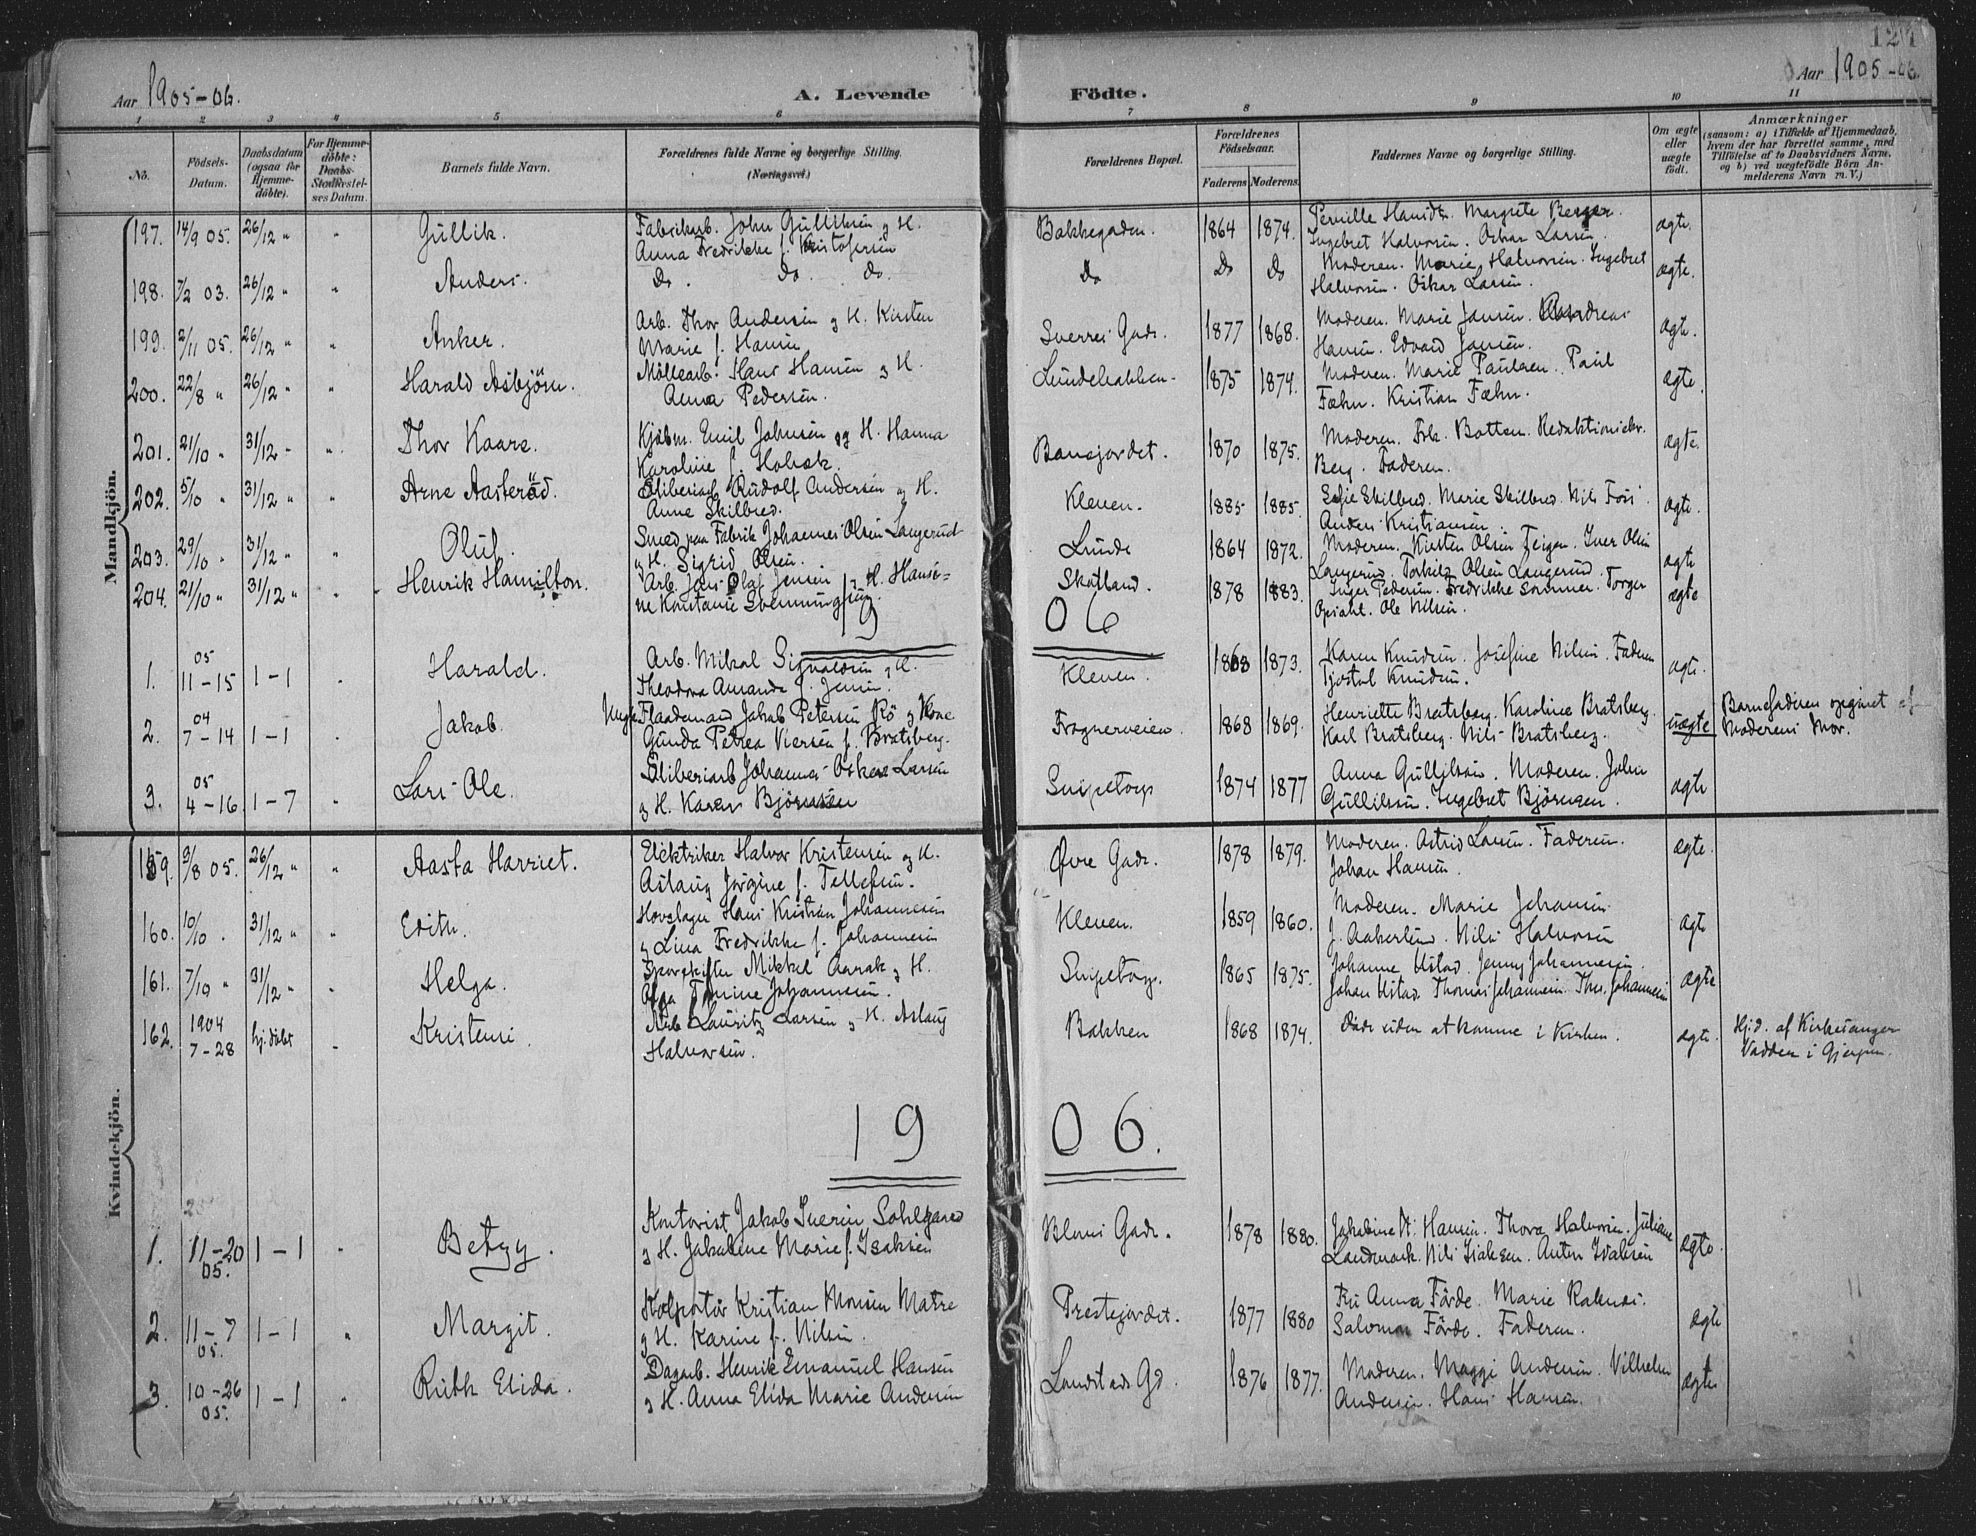 Aar 1905-06. A. Levende Födte. Aar 1905-06. 121
1 2 3 4 5 6 7 8 9 10 11
No. Födsels-Datum. Daabsdatum (ogsaa for Hjemmedöbte). For Hjemmedöbte: Daabs-Stadfæstelses Datum. Barnets fulde Navn. Forældrenes fulde Navne og borgerlige Stilling. (Næringsvei.) Forældrenes Bopæl. Forældrenes Födselsaar. Faderens Moderens. Faddernes Navne og borgerlige Stilling. Om ægte eller uægte födt. Anmærkninger (saasom: a) i Tilfælde af Hjemmedaab, hvem der har forrettet samme, med Tilföielse af to Daabsvidners Navne, og b) ved uægtefödte Börn Anmelderens Navn m. V.)
Mandkjön.
197. 14/9 05. 26/12 " " Gullik. Fabrikarb. John Gulliksen og H. Bakkegaden. 1864 1874. Pernille Hamdt. Margrete Berger. ægte.
Anna Fredrikke f. Kristofersen Ingebret Halvorsen. Oskar Larsen.
198. 7/2 03. 26/12 " " Anders. Do. Do. Do. Do Do Do Moderen. Marie Halvorsen. Ingebret ægte.
Halvorsen. Oskar Larsen.
199. 2/11 05. 26/12 " " Anker. Arb. Thor Andersen og H. Kirsten Sverres Gade. 1877 1868. Moderen. Marie Jansen. Andreas ægte.
Marie f. Hansen Hansen. Edvard Jansen.
200. 22/8 " 26/12 " " Harald Asbjörn. Möllearb. Hans Hansen og H. Lundebakken. 1875 1874. Moderen. Marie Paulsen. Paul ægte.
Anna Pedersen. Fæhn. Kristian Fæhn.
201. 21/10 " 31/12 " " Thor Kaare. Kjöbm. Emil Johnsen og H. Hanna Banejordet. 1870 1875. Moderen. Frk. Botten. Redaktionssekr. ægte.
Karoline f. Holsæk. Berg. Faderen.
202. 5/10 " 31/12 " " Arne Aasteröd. Sliberiarb. Rudolf Andersen og H. Kleven. 1885 1885. Sofie Skilbred. Marie Skilbred. Nils Foss. ægte.
Anna Skilbred. Anders Kristiansen.
203. 29/10 " 31/12 " " Oluf. Smed paa Fabrik Johannes Olsen Langerud Lunde 1864 1872. Moderen. Kirsten Olsen Teigen. Iver Olsen ægte
og H. Sigrid Olsen. Langerud. Torkild Olsen Langerud.
204. 21/10 " 31/12 " " Henrik Hamilton. Arb. Jens Olaf Jensen og H. Hansi= Skotland. 1878 1883. Inger Pedersen. Fredrikke Sommer. Torger ægte
ne Konstanse Svenningsen. Opsahl. Ole Nilsen.
19 06
1. 05 11-15 1-1 " Harald. Arb. Mikal Sigvaldsen og H. Kleven. 1868 1873. Karen Knudsen. Josefine Nilsen. Faderen ægte.
Theodora Amanda f. Jensen. Tjostol Knudsen.
2. 04 7-14 1-1 " Jakob. Ungk. Flaademand Jakob Petersen Rö og Kone Frognerveien. 1868 1869. Henriette Bratsberg. Karoline Bratsberg. uægte Barnefaderen opgivet af
Gunda Petrea Iversen f. Bratsberg. Karl Bratsberg. Nils Bratsberg. Moderens Mor.
3. 05 4-16 1-7 " Lars Ole. Sliberiarb. Johannes Oskar Larsen Snipetorp 1874 1877 Anna Gulliksen. Moderen. John ægte
og H. Karen Björnsen Gulliksen. Ingebret Björnsen.
Kvindekjön.
159. 9/8 05. 26/12 " " Aasta Harriet. Elektriker Halvor Kristensen og H. Övre Gade. 1878 1879. Moderen. Astrid Larsen. Faderen. ægte.
Aslaug Jörgine f. Tellefsen. Johan Hansen.
160. 10/10 . 31/12 " " Edith. Hovslager Hans Kristian Johannesen Kleven. 1859 1860. Moderen. Marie Johansen ægte
og Lina Fredrikke f. Johannesen J. Aakerlund. Nils Halvorsen
161. 7/10 " 31/12 " " Helga. Sporskifter Mikkel Aarak og H. Snipetorp. 1865 1875. Johanne Ustad. Jenny Johannesen. ægte
Olga Tomine Johannesen. Johan Ustad. Thomas Johannesen. Ths. Johannesen
162. 1904 7-28 hj. döbt " Kristense. Arb. Lauritz Larsen og H. Aslaug Bakken 1868 1874. Döde uden at komme i Kirken. ægte. Hj.d. af Kirkesanger
Halvorsen. Vadder i Gjerpen.
19 06.
1. 11-20 05. 1-1 " Betzy. Kontorist Jakob Iversen Sohlgaard Blome Gade. 1878 1880. Jakobine M. Hansen. Thora Halvorsen. Juliane ægte.
og H. Jakobine Marie f. Isaksen Landmark. Nils Isaksen. Anton Isaksen
2. 11-7 05. 1-1 " Margit. Kolportör Kristian Monsen Matre Prestejordet. 1877 1880 Fru Anna Förde. Marie Raknes. ægte
og H. Karine f. Nilsen. Salomon Förde. Faderen.
3. 10-26 05. 1-1 " Ruth Elida. Dagarb. Henrik Emanuel Hansen Lundstads Gd. 1876 1877. Moderen. Maggi Andersen. Vilhelm ægte
og H. Anna Elida Marie Andersen Andersen. Hans Hansen.